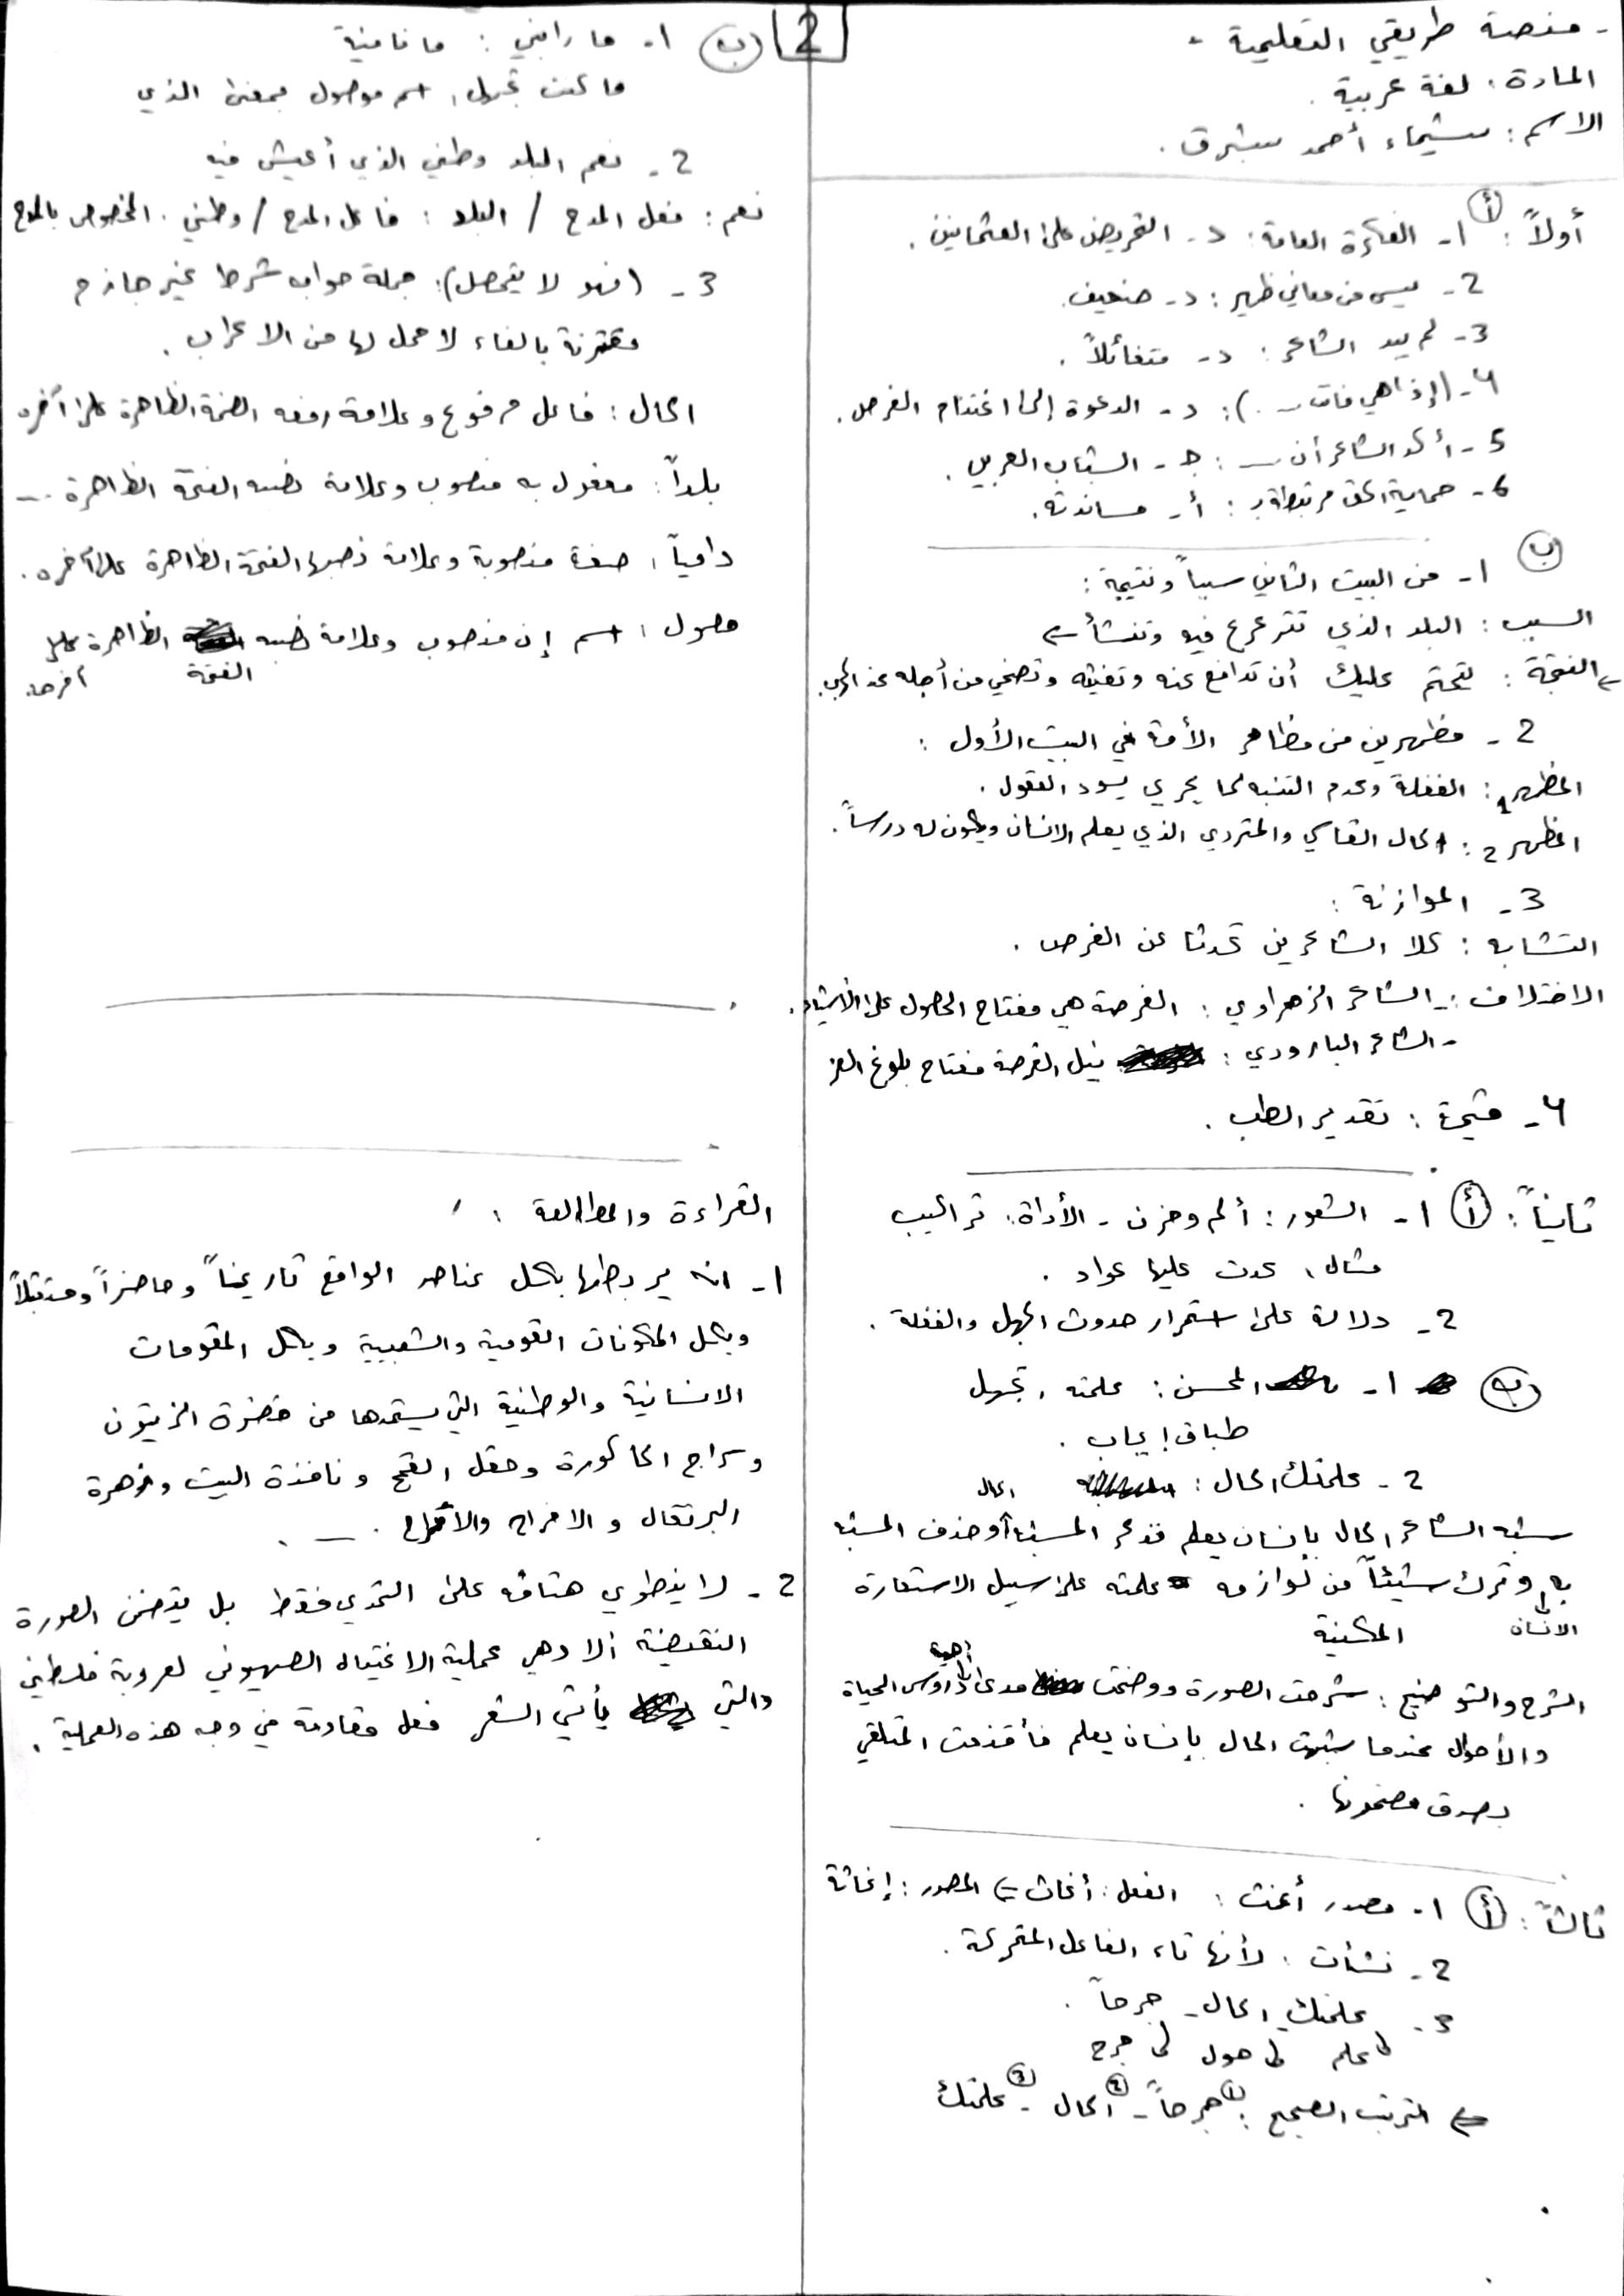 - منصة طريقي التعليمية -
المادة: لغة عربية.
الاسم: شيماء أحمد
أولاً: أ 1- الفكرة العامة: د- التحريض على العثمانيين.
2- ليس من معاني ظهير: د- ضعيف.
3- لم يبد الشاعر: د- متفائلاً.
4- (إذا هي فات ...): د- الدعوة إلى اغتنام الفرص.
5- أكد الشاعر أن ...: ج- الشباب العربي.
6- حماية الحق مرتبطة بـ: أ- مساندته.
ب 1- من البيت الثاني سبباً ونتيجة:
السبب: البلد الذي تترعرع فيه وتنشأ ←
← النتيجة: تحتم عليك أن تدافع عنه وتغيثه وتضحي من أجله
2- مظهرين من مظاهر الأمة في البيت الأول:
المظهر 1: الغفلة وعدم التنبه لما يجري يسود العقول.
المظهر 2: الحال القاسي والمتردي الذي يعلم الانسان ويكون له درساً.
3- الموازنة:
التشابه: كلا الشاعرين تحدثا عن الفرص.
الاختلاف: - الشاعر الزهراوي: الفرصة هي مفتاح الحصول على الأشياء.
- الشاعر البارودي: نيل الفرصة مفتاح بلوغ العز
4- قيمة: تقدير الطب.
ثانياً: أ 1- الشعور: ألم وحزن - الأداة: تراكيب
مثال: عدت عليها عواد.
2- دلالة على استمرار حدوث الجهل والغفلة.
ب 1- المحسن: علمته، تجهل
طباق إيجاب.
2- علمتك الحال: الحال
شبه الشاعر الحال بإنسان يعلم فذكر المشبه أو حذف المشبه
به وترك شيئاً من لوازمه علمته على سبيل الاستعارة
الانسان المكنية
الشرح والتوضيح: شرحت الصورة ووضحت مدى أهمية دروس الحياة
والأحوال عندما شبهت الحال بإنسان يعلم فأقنعت المتلقي
بصدق مضمونها.
ثالثاً: أ 1- مصدر أغث: الفعل: أغاث ← المصدر: إغاثة
2- نشأت: لأنها تاء الفاعل المتحركة.
3- علمتك - الحال - جرحاً.
علم حول جرح
← الترتيب الصحيح: 1 جرحاً - 2 الحال - 3 علمتك
2
ب 1- ما رابني: ما نافية
ما كنت تجهل: اسم موصول بمعنى الذي
2- نعم البلد وطني الذي أعيش فيه
نعم: فعل المدح / البلد: فاعل المدح / وطني: المخصوص بالمدح
3- (فهو لا يتحصل): جملة جواب شرط غير جازم
مقترنة بالفاء لا محل لها من الاعراب.
الحال: فاعل مرفوع وعلامة رفعه الضمة الظاهرة على آخره
بلداً: مفعول به منصوب وعلامة نصبه الفتحة الظاهرة ...
دامياً: صفة منصوبة وعلامة نصبها الفتحة الظاهرة على آخره.
حصول: اسم إن منصوب وعلامة نصبه الظاهرة على
الفتحة آخره.
القراءة والمطالعة:
1- انه يربطها بكل عناصر الواقع تاريخاً وحاضراً ومستقبلاً
وبكل المكونات القومية والشعبية وبكل المقومات
الانسانية والوطنية التي يستمدها من خضرة الزيتون
وسراج الحاكورة وحقل القمح ونافذة البيت وزهرة
البرتقال و الافراح والأتراح.
2- لا ينطوي هتافه على التحدي فقط بل يتضمن الصورة
النقيضة ألا وهي عملية الاغتيال الصهيوني لعروبة فلسطين
والتي يأتي الشعر فعل مقاومة في وجه هذه العملية.